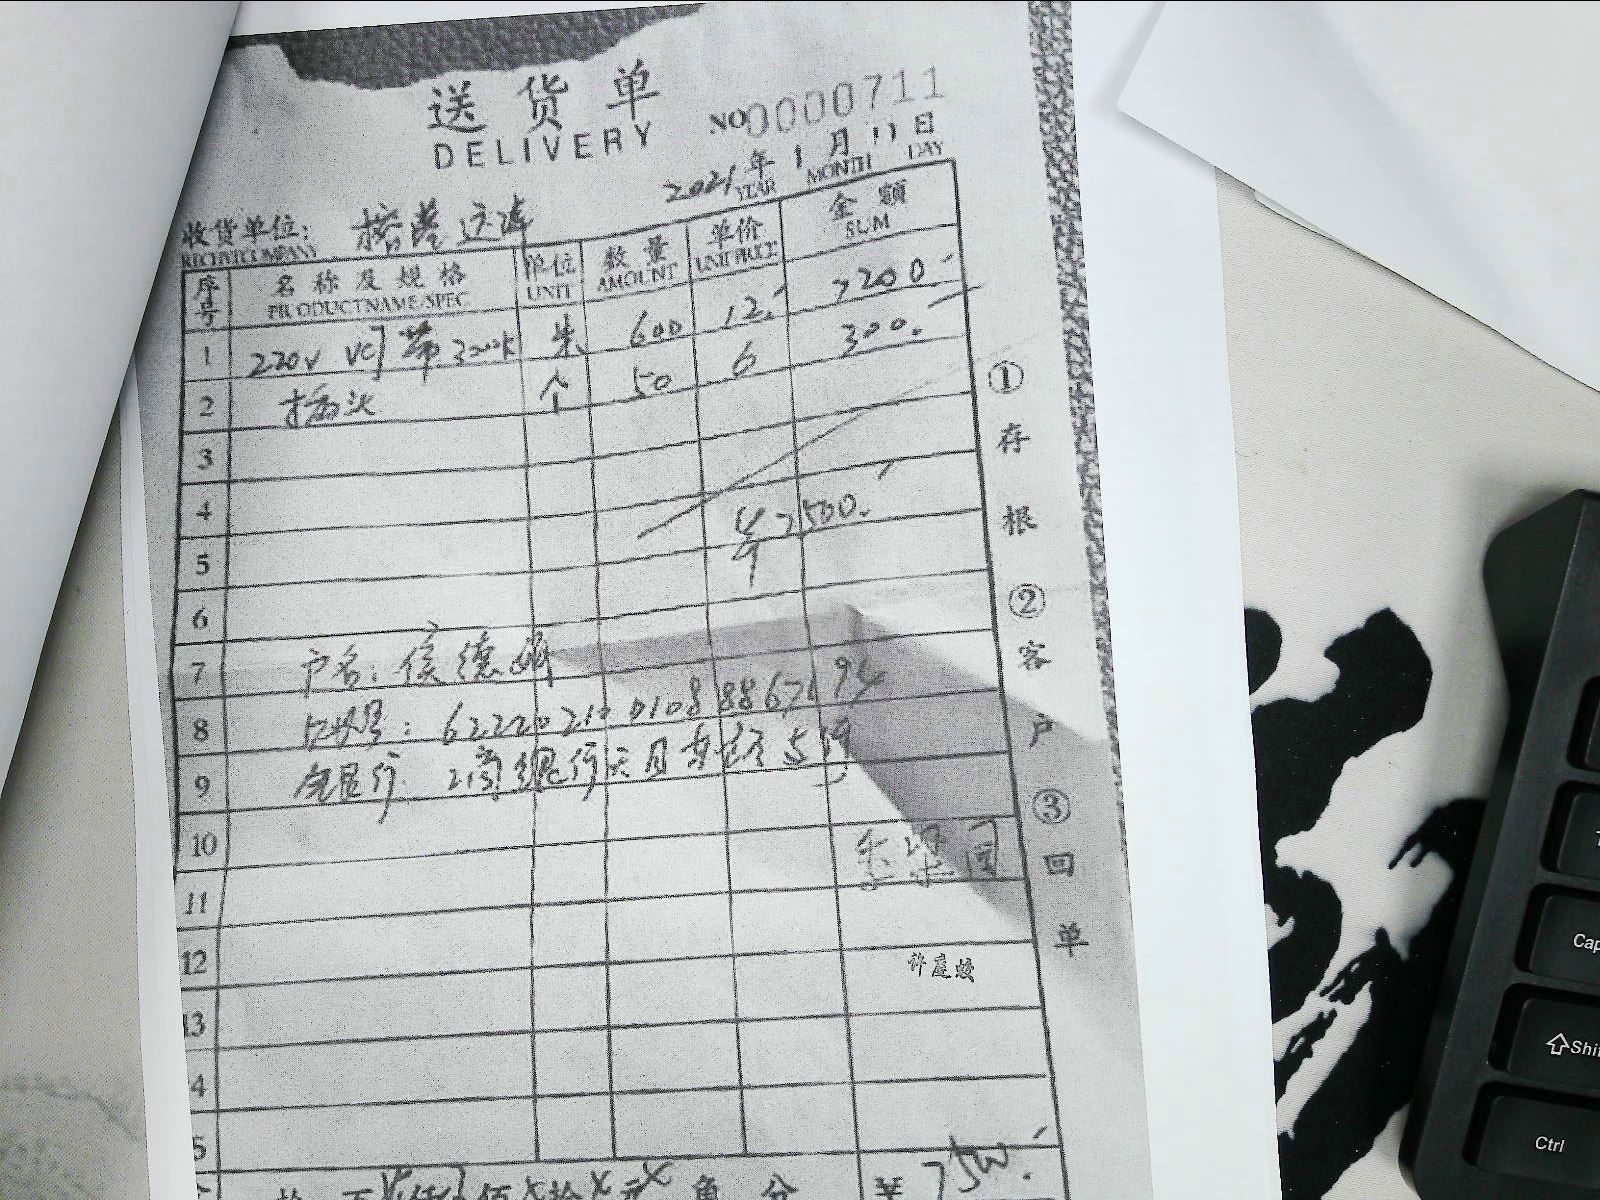 送货单
DELIVERY
NO 0000711
2021年 1月 11日
YEAR MONTH DAY
收货单位:
RECEIVECOMPANY
序号 名称及规格 单位 数量 单价 金额
PRODUCTNAME/SPEC UNIT AMOUNT UNIT PRICE SUM
1 220V 带 3000k 米 600 12.- 7200.-
2 插头 个 50 6 300.-
3
4
5 ¥7500.-
6
7 户名: 侯德娟
8 6222021001088867194
9 工商银行天目
10
11
12 许建蛟
13
4
5
万 仟 佰 拾 元 角 分 ¥ 7500.-
①存根
②客户
③回单
Cap
Shif
Ctrl